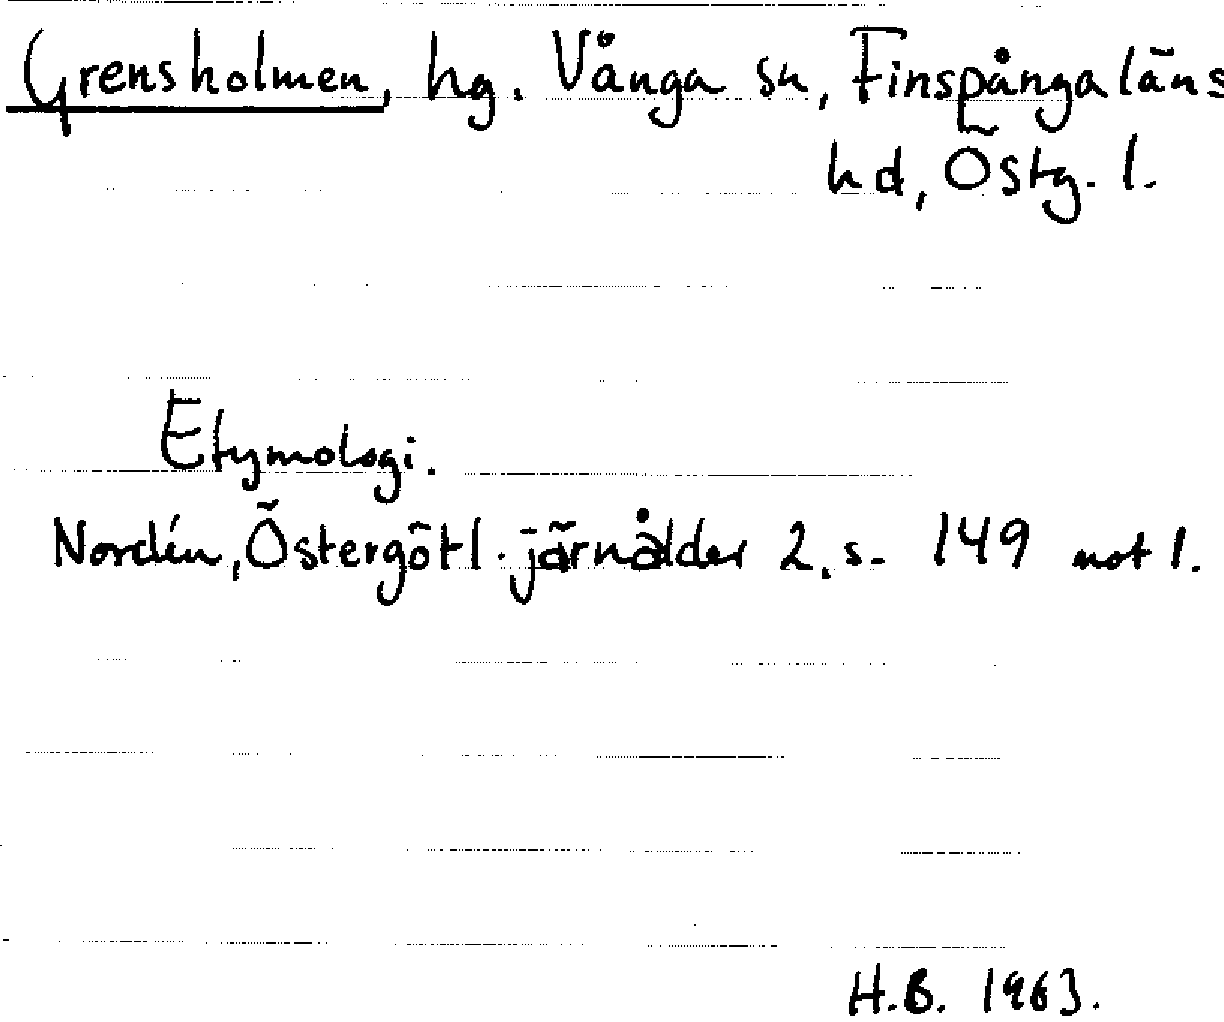 Grensholmen, hg. Vånga sn, Finspånga läns
hd, Östg. l.
Etymologi.
Nordén, Östergötl. järnålder 2, s. 149 not 1.
H.B. 1963.